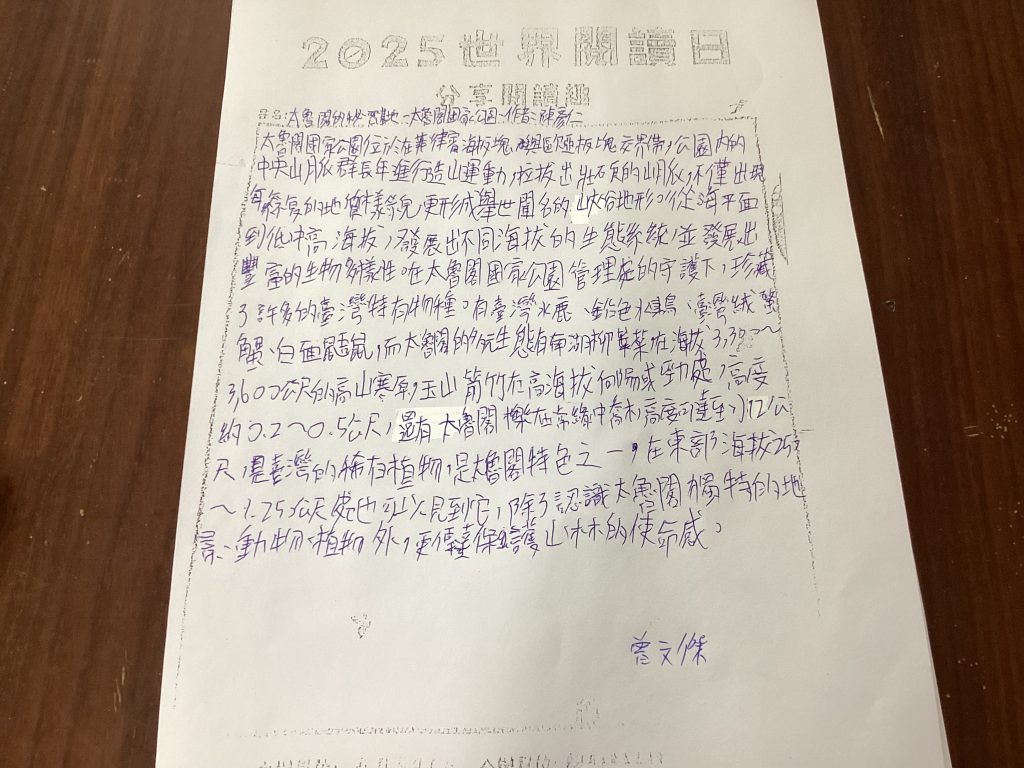 2025世界閱讀日
分享閱讀趣
書名:太魯閣的 太魯閣國家公園 作者:陳彥仁
太魯閣國家公園位於在菲律賓海板塊與歐亞板塊交界帶,公園內的
中央山脈群長年進行造山運動,拉拔出壯碩的山脈,不僅出現
複的地質樣貌,更形成舉世聞名的峽谷地形。從海平面
到低中高海拔,發展出不同海拔的生態系統,並發展出
豐富的生物多樣性。在太魯閣國家公園管理處的守護下,珍藏
了許多的臺灣特有物種。有臺灣水 、鉛色水鶇、臺灣絨螯
蟹、白面鼯鼠,而太魯閣的 生態 南湖柳葉菜在海拔3,300~
3,600公尺的高山寒原,玉山箭竹在高海拔向陽或 處,高度
約0.2~0.5公尺,還有太魯閣櫟在常綠中喬木,高度可達至 12公
尺,是臺灣的稀有植物,是太魯閣特色之一,在東部海拔
~1,250公尺處也可以見到它,除了認識太魯閣獨特的地
景、動物、植物外,更 保護山林的使命感。
曾文傑